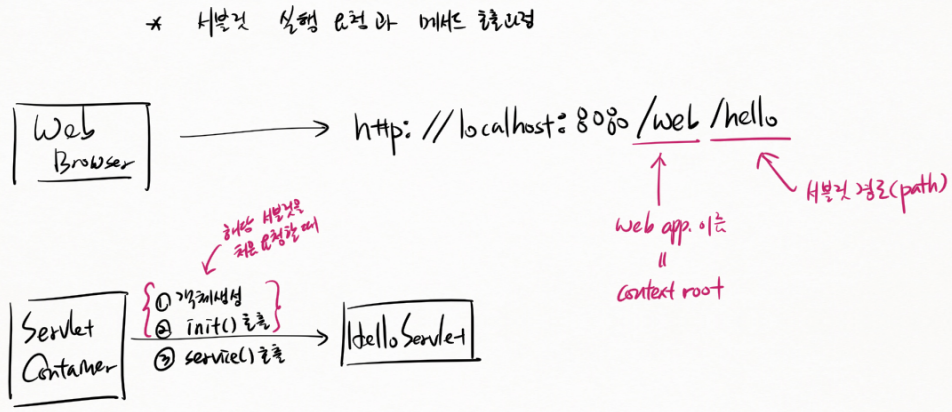 * 서블릿 실행 요청과 메서드 호출과정
Web
Browser
http://localhost:8080/web/hello
서블릿 경로(path)
Web app. 이름
=
Context root
해당 서블릿을
처음 요청할 때
Servlet
Container
① 객체생성
② init() 호출
③ service() 호출
HelloServlet